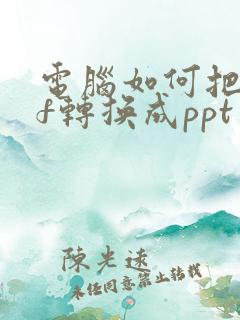 電腦如何把
f轉換成ppt
陳光遠
未經同意禁止轉載